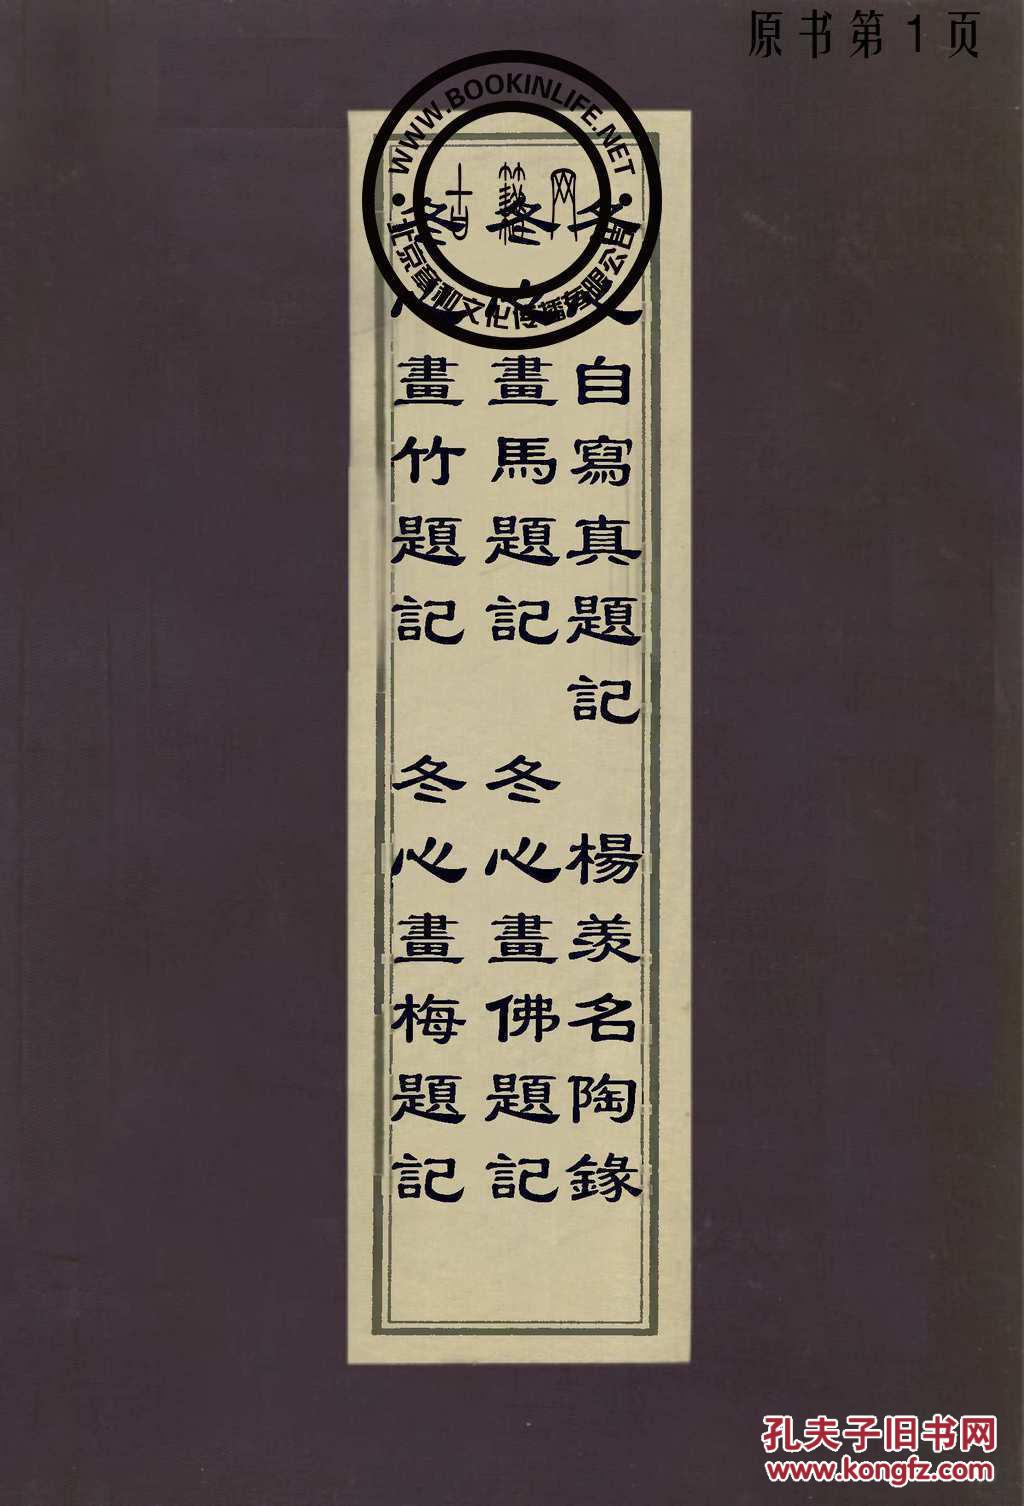 原书第1页
WWW.BOOKINLIFE.NET
古籍网
北京章和文化传播有限公司
冬心自寫真題記 楊羨名陶錄
冬心畫馬題記 冬心畫佛題記
冬心畫竹題記 冬心畫梅題記
孔夫子旧书网
www.kongfz.com